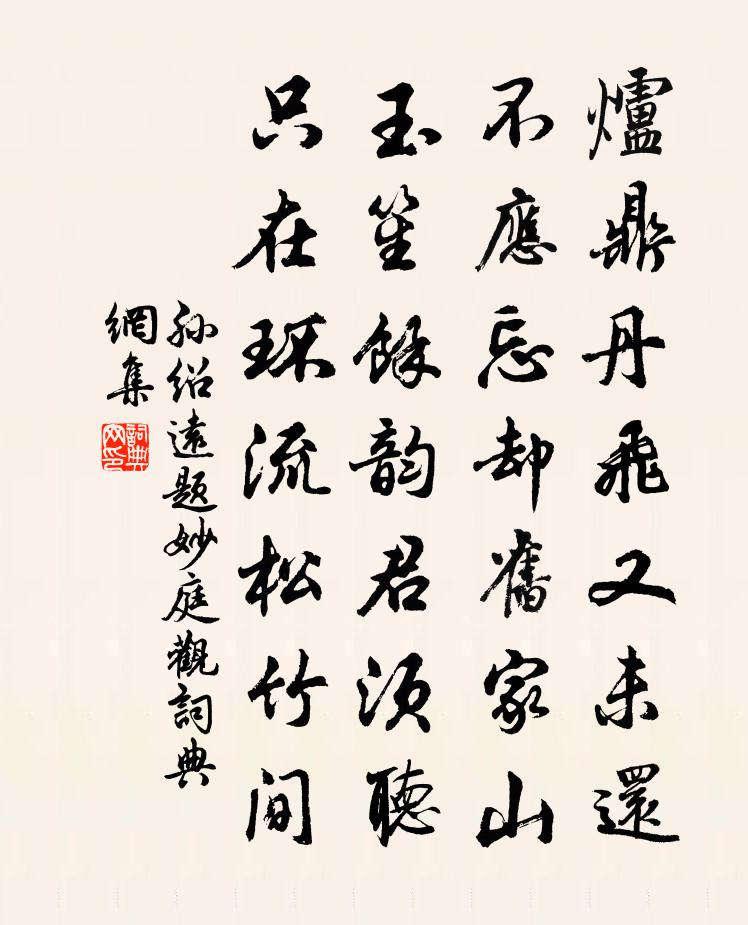 爐鼎丹飛又未還
不應忘却舊家山
玉笙餘韵君須聽
只在環流松竹間
孙绍遠題妙庭觀詞典
網集
詞典網印